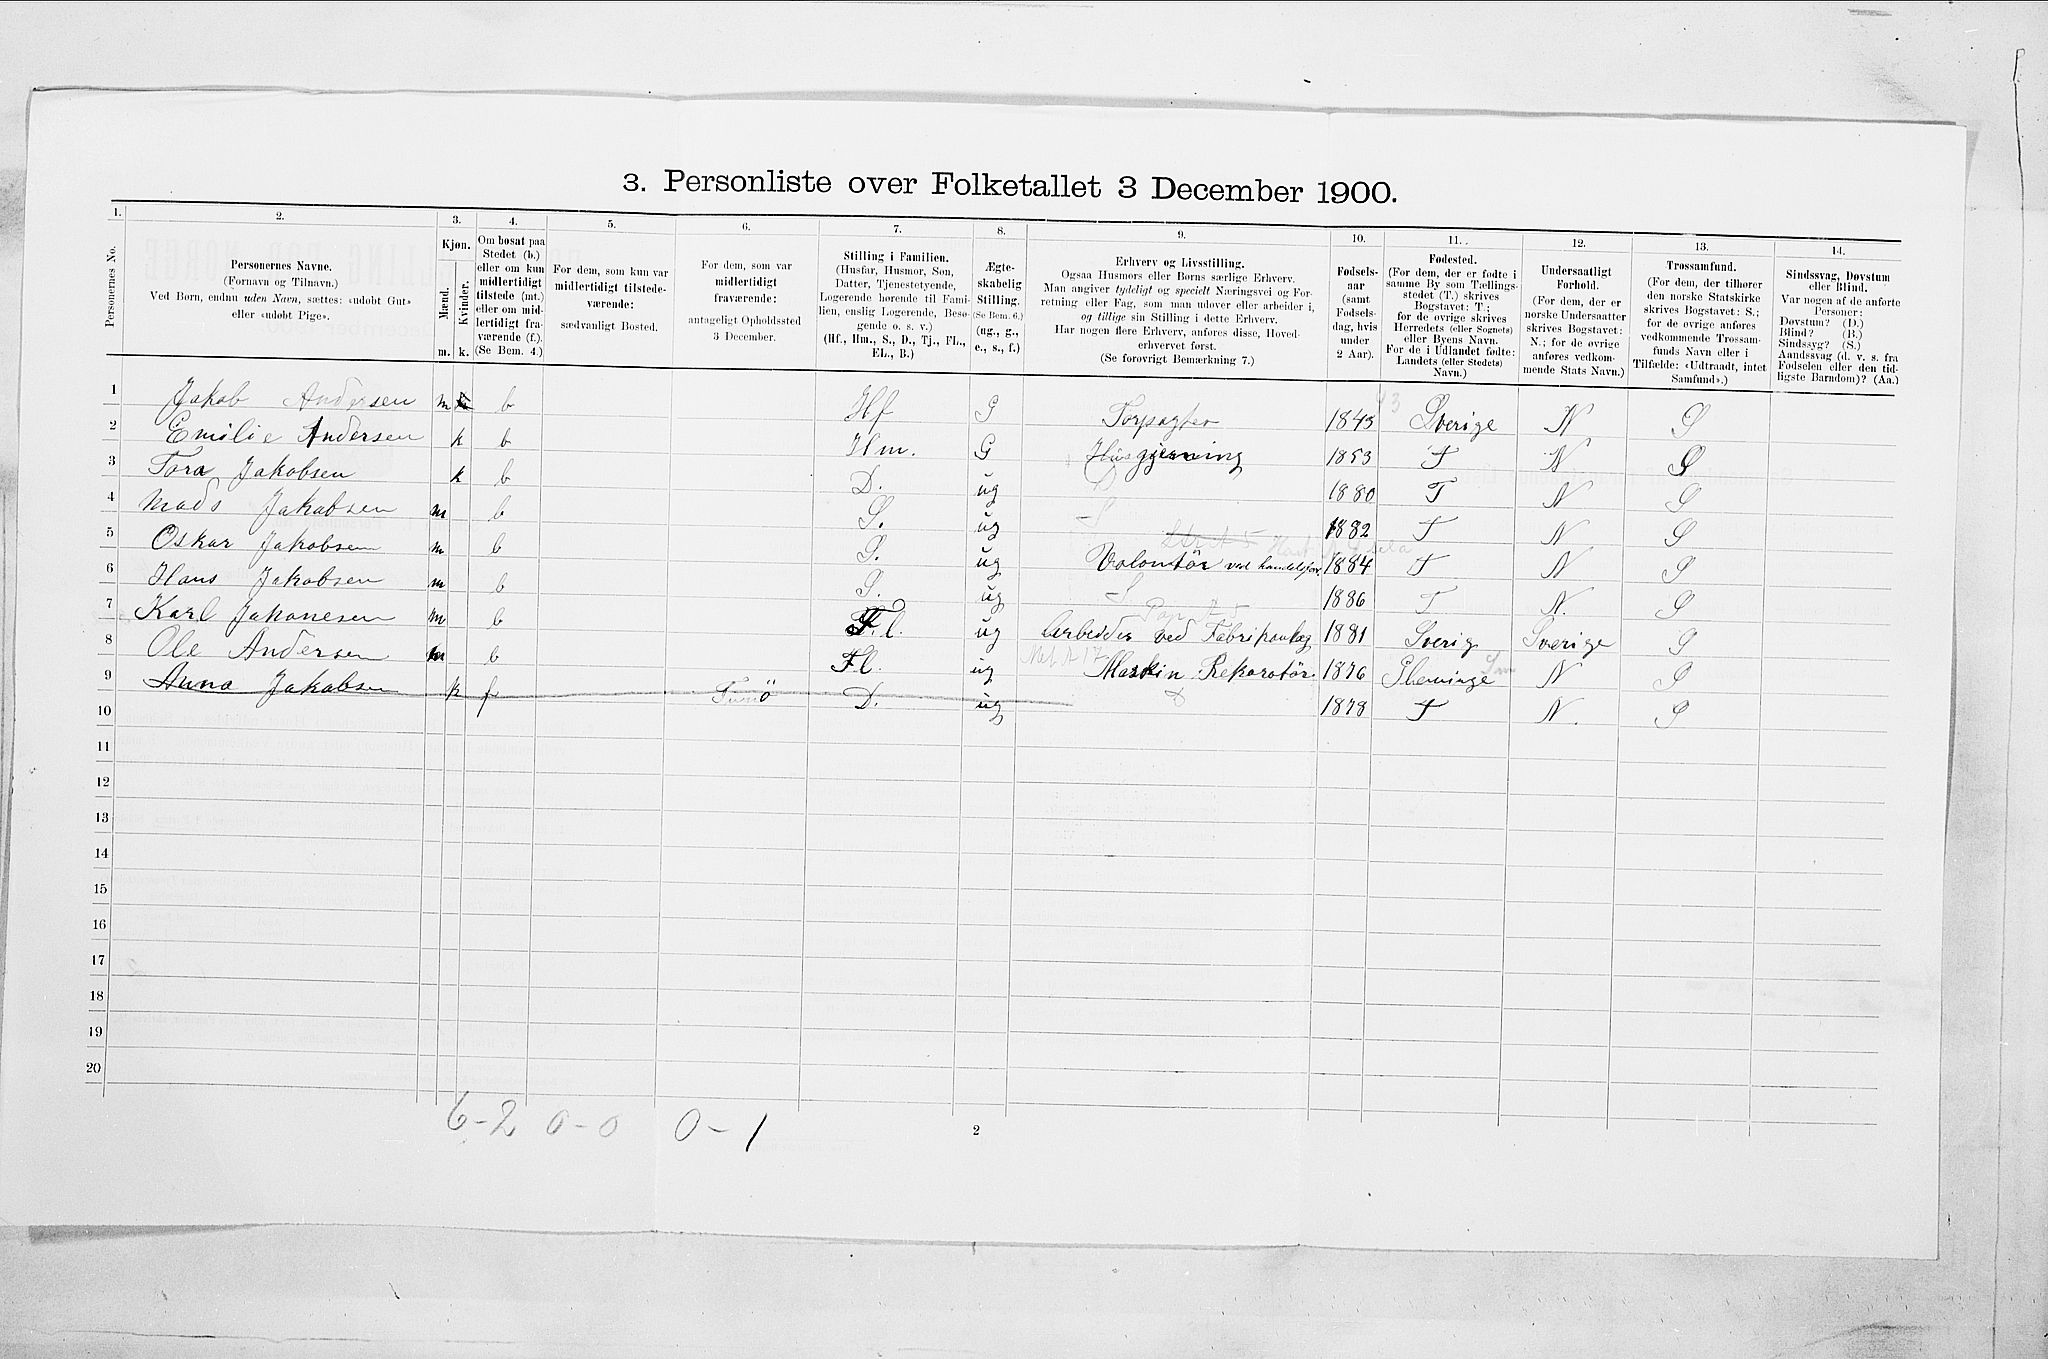 3. Personliste over Folketallet 3 December 1900.
1. 2. 3. 4. 5. 6. 7. 8. 9. 10. 11. 12. 13. 14.
Personernes No.
Personernes Navne.
(Fornavn og Tilnavn.)
Ved Børn, endnu uden Navn, sættes: «udøbt Gut»
eller «udøbt Pige».
Kjøn.
Mænd. Kvinder.
m. k.
Om bosat paa
Stedet (b.)
eller om kun
midlertidigt
tilstede (mt.)
eller om mid-
lertidigt fra-
værende (f.).
(Se Bem. 4.)
For dem, som kun var
midlertidigt tilstede-
værende:
sædvanligt Bosted.
For dem, som var
midlertidigt
fraværende:
antageligt Opholdssted
3 December.
Stilling i Familien.
(Husfar, Husmor, Søn,
Datter, Tjenestetyende,
Logerende hørende til Fami-
lien, enslig Logerende, Besø-
gende o. s. v.)
(Hf., Hm., S., D., Tj., FL.,
EL., B.)
Ægte-
skabelig
Stilling.
(Se Bem. 6.)
(ug., g.,
e., s., f.)
Erhverv og Livsstilling.
Ogsaa Husmors eller Børns særlige Erhverv.
Man angiver tydeligt og specielt Næringsvei og For-
retning eller Fag, som man udover eller arbeider i,
og tillige sin Stilling i dette Erhverv.
Har nogen flere Erhverv, anføres disse, Hoved-
erhvervet først.
(Se forøvrigt Bemærkning 7.)
Fødsels-
aar
(samt
Fødsels-
dag, hvis
under
2 Aar).
Fødested.
(For dem, der er fødte i
samme By som Tællings-
stedet (T.) skrives
Bogstavet: T.;
for de øvrige skrives
Herredets (eller Sognets)
eller Byens Navn.
For de i Udlandet fødte:
Landets (eller Stedets)
Navn.)
Undersaatligt
Forhold.
(For dem, der er
norske Undersaatter
skrives Bogstavet:
N.; for de øvrige
anføres vedkom-
mende Stats Navn.)
Trossamfund.
(For dem, der tilhører
den norske Statskirke
skrives Bogstavet: S.;
for de øvrige anføres
vedkommende Trossam-
funds Navn eller i
Tilfælde: «Udtraadt, intet
Samfund».)
Sindssvag, Døvstum
eller Blind.
Var nogen af de anførte
Personer:
Døvstum? (D.)
Blind? (B.)
Sindssyg? (S.)
Aandssvag (d. v. s. fra
Fødselen eller den tid-
ligste Barndom)? (Aa.)
1 Jakob Andersen m b Hf G Forpagter 1843 Sverige N S
2 Emilie Andersen k b Hm. G Husgjerning 1853 T N S
3 Tora Jakobsen k b D. ug D 1880 T N S
4 Mads Jakobsen m b S. ug S 1882 T N S
5 Oskar Jakobsen m b S. ug Volontør ved handelsfor. 1884 T N S
6 Hans Jakobsen m b S. ug S 1886 T N. S
7 Karl Johanesen m b F.l. ug Arbeider ved 1881 Sverig Sverige S
8 Ole Andersen m b Fl. ug Maskin Reparatør. 1876 N S
9 Anna Jakobsen k f D. ug D 1878 T N. S
10
11
12
13
14
15
16
17
18
19
20
6-2 0-0 0-1
2